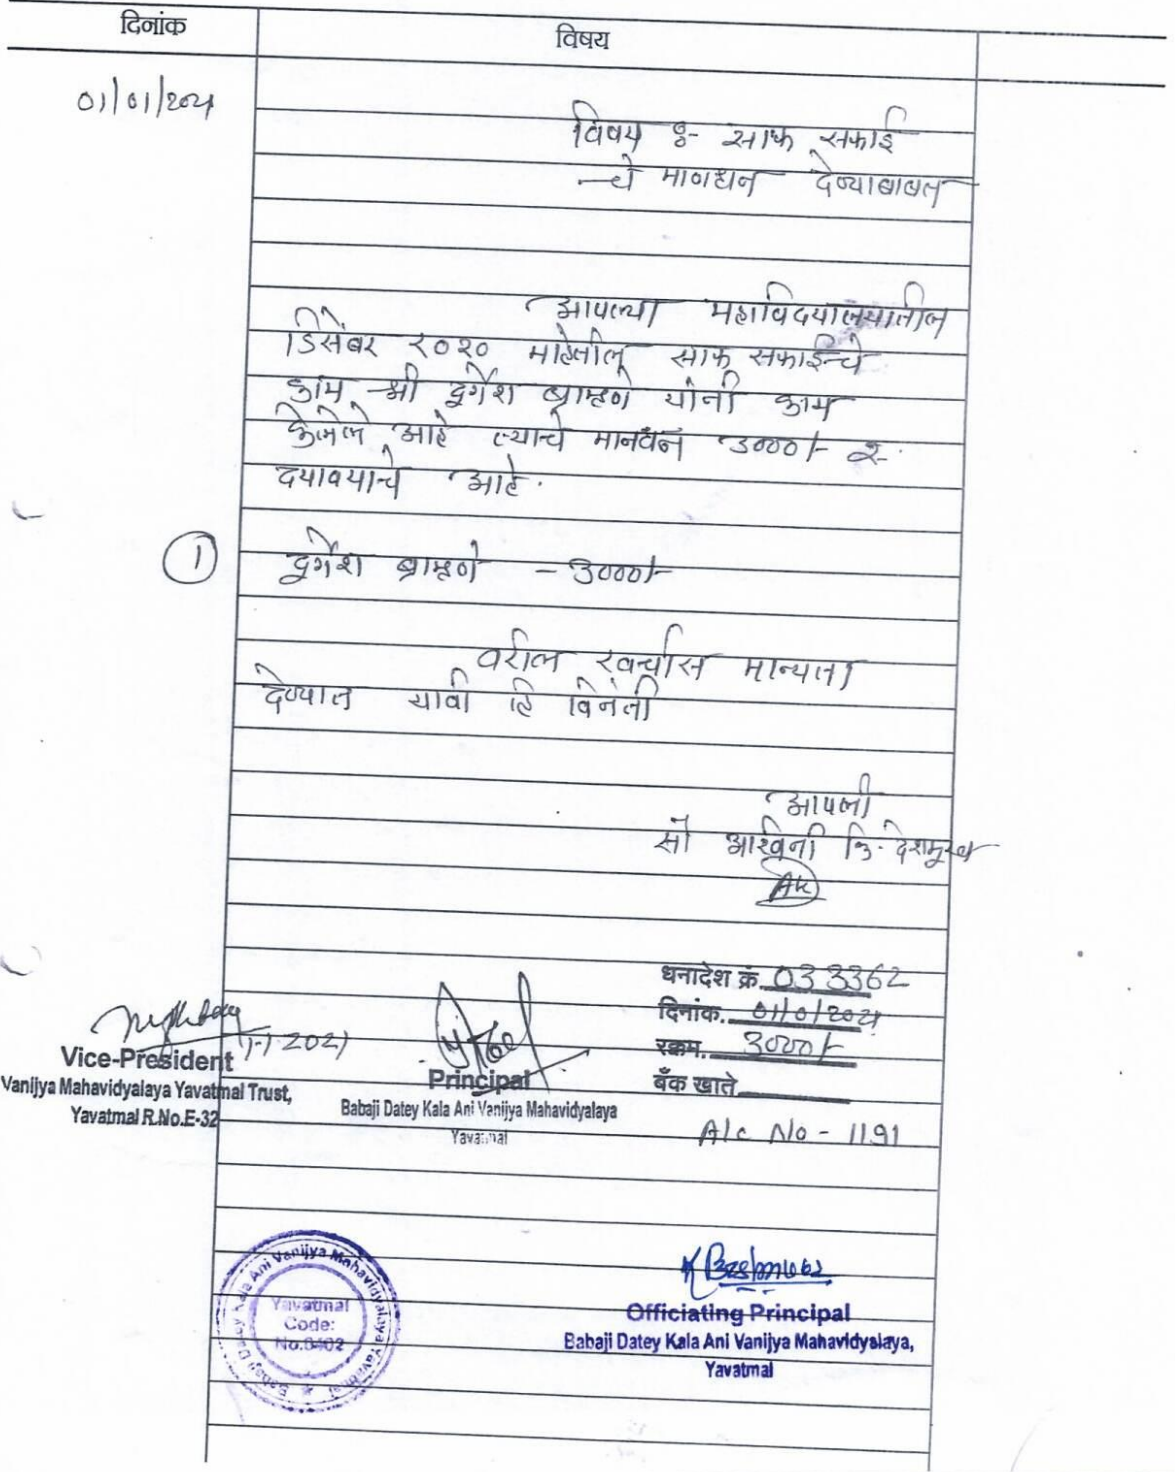 दिनांक
विषय
01/01/2021
विषय :- साफ सफाई
चे मानधन देण्याबाबत
आपल्या महाविदयालयातील
डिसेंबर २०२० माहेतील साफ सफाईचे
काम श्री दुर्गेश ब्राम्हणे यांनी काम
केलेले आहे त्याचे मानधन 3000/- रु.
दयावयाचे आहे.
1 दुर्गेश ब्राम्हणे - 3000/-
वरील खर्चास मान्यता
देण्यात यावी हि विनंती
आपली
सौ अश्विनी कि. देशमुख
AK
धनादेश क्रं. 033362
दिनांक. 01/01/2021
रक्कम. 3000/-
बँक खाते
A/c No - 1191
1-1-2021
Vice-President
Vanijya Mahavidyalaya Yavatmal Trust,
Yavatmal R.No.E-32
Principal
Babaji Datey Kala Ani Vanijya Mahavidyalaya
Yavatmal
Babaji Datey Kala Ani Vanijya Mahavidyalaya Yavatmal
Yavatmal
Code:
No.6402
Officiating Principal
Babaji Datey Kala Ani Vanijya Mahavidyalaya,
Yavatmal